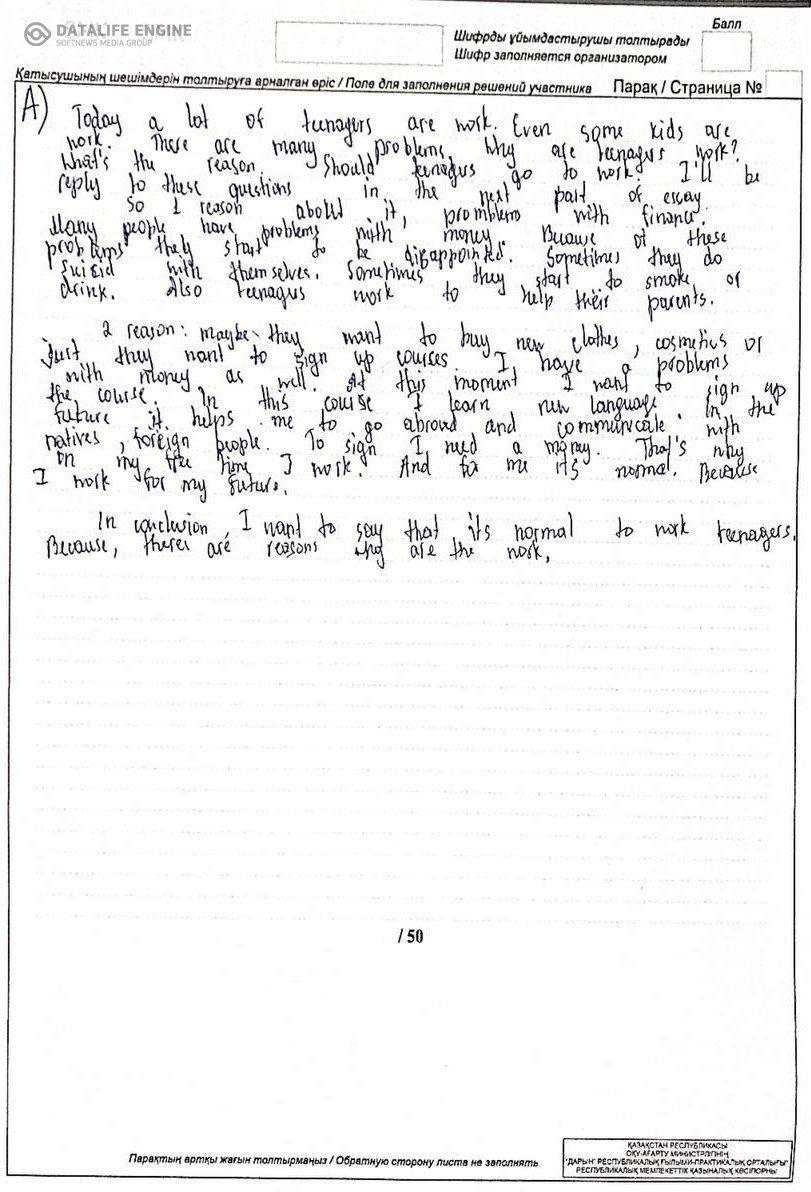 DATALIFE ENGINE
SOFTNEWS MEDIA GROUP
Балл
Шифрды ұйымдастырушы толтырады
Шифр заполняется организатором
Қатысушының шешімдерін толтыруға арналған өріс / Поле для заполнения решений участника Парақ / Страница №
A) Today a lot of teenagers are work. Even some kids are
work. There are many problems. Why are teenagers work?
What's the reason. Should teenagers go to work? I'll be
reply to these questions in the next part of essay.
So 1 reason about it, promblem with finance.
Many people have problems with money. Because of these
problems they start to be disappointed. Sometimes they do
suicid with themselves. Sometimes they start to smoke or
drink. Also teenagers work to help their parents.
2 reason: maybe they want to buy new clothes, cosmetics or
just they want to sign up courses. I have a problems
with money as well. At this moment I want to sign up
the course. In this course I learn new language. In the
future it helps me to go abroad and communicate with
natives, foreign people. To sign I need a money. That's why
on my free time I work. And for me its normal. Because
I work for my future.
In conclusion, I want to say that its normal to work teenagers.
Because, theres are reasons why are the work.
/ 50
Парақтың артқы жағын толтырмаңыз / Обратную сторону листа не заполнять
ҚАЗАҚСТАН РЕСПУБЛИКАСЫ
ОҚУ-АҒАРТУ МИНИСТРЛІГІНІҢ
"ДАРЫН" РЕСПУБЛИКАЛЫҚ ҒЫЛЫМИ-ПРАКТИКАЛЫҚ ОРТАЛЫҒЫ"
РЕСПУБЛИКАЛЫҚ МЕМЛЕКЕТТІК ҚАЗЫНАЛЫҚ КӘСІПОРНЫ